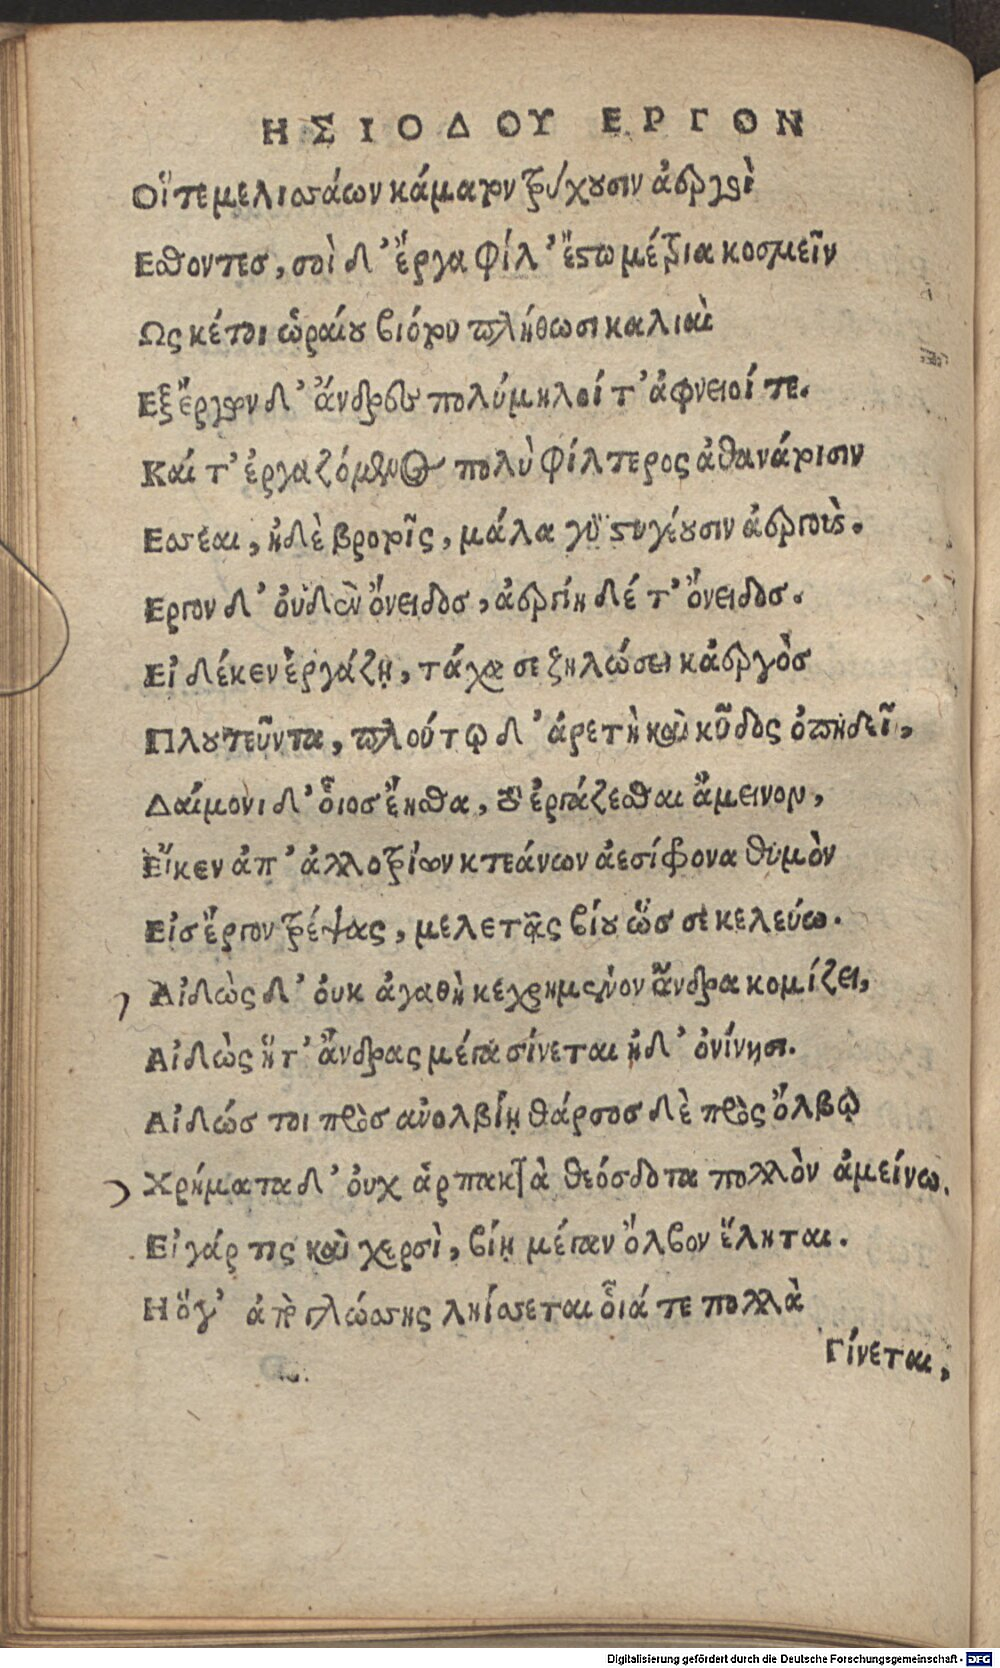 ΗΣΙΟΔΟΥ ΕΡΓΟΝ
Οἵ τε μελισσάων κάματον τρύχουσιν ἀεργοὶ
Εσθοντες, σοὶ δ' ἔργα φίλ' ἔστω μέτρια κοσμεῖν
Ως κέ τοι ὡραίου βιότου πλήθωσι καλιαὶ
Εξ ἔργων δ' ἄνδρες πολύμηλοί τ' ἀφνειοί τε.
Καί τ' ἐργαζόμενος πολὺ φίλτερος ἀθανάτοισιν
Εσσέαι, ἠδὲ βροτοῖς, μάλα γὰρ στυγέουσιν ἀεργοὺς.
Εργον δ' οὐδὲν ὄνειδος, ἀεργίη δέ τ' ὄνειδος.
Εἰ δέ κεν ἐργάζῃ, τάχα σε ζηλώσει κἀεργὸς
Πλουτεῦντα, πλούτῳ δ' ἀρετὴ καὶ κῦδος ὀπηδεῖ,
Δαίμονι δ' οἷος ἔησθα, τὸ ἐργάζεσθαι ἄμεινον,
Εἴ κεν ἀπ' ἀλλοτρίων κτεάνων ἀεσίφρονα θυμὸν
Εἰς ἔργον τρέψας, μελετᾷς βίου ὥς σε κελεύω.
Αἰδὼς δ' οὐκ ἀγαθὴ κεχρημένον ἄνδρα κομίζει,
Αἰδὼς ἥ τ' ἄνδρας μέγα σίνεται ἠδ' ὀνίνησι.
Αἰδώς τοι πρὸς ἀνολβίῃ θάρσος δὲ πρὸς ὄλβῳ
Χρήματα δ' οὐχ ἁρπακτὰ θεόσδοτα πολλὸν ἀμείνω.
Εἰ γάρ τις καὶ χερσὶ, βίῃ μέγαν ὄλβον ἕληται.
Η ὅγ' ἀπὸ γλώσσης ληίσσεται οἷά τε πολλὰ
Γίνεται,
Digitalisierung gefördert durch die Deutsche Forschungsgemeinschaft - DFG